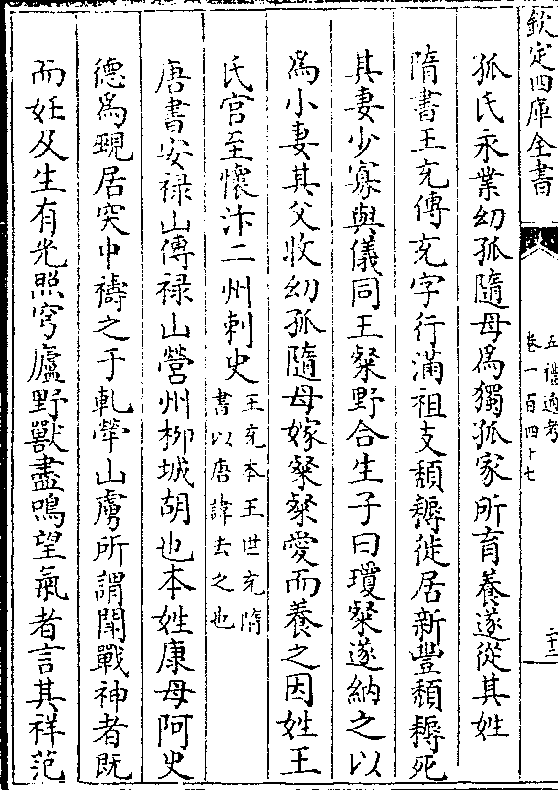 欽定四庫全書
五禮通考
卷一百四十七
二十二
孤氏永業幼孤隨母為獨孤家所育養遂從其姓
隋書王充傳充字行滿祖支頽耨徙居新豐頽耨死
其妻少寡與儀同王粲野合生子曰瓊粲遂納之以
為小妻其父收幼孤隨母嫁粲粲愛而養之因姓王
氏官至懷汴二州刺史王充本王世充隋
書以唐諱去之也
唐書安禄山傳禄山營州柳城胡也本姓康母阿史
德為覡居突中禱之于軋犖山虜所謂鬭戰神者既
而妊及生有光照穹廬野獸盡鳴望氣者言其祥范